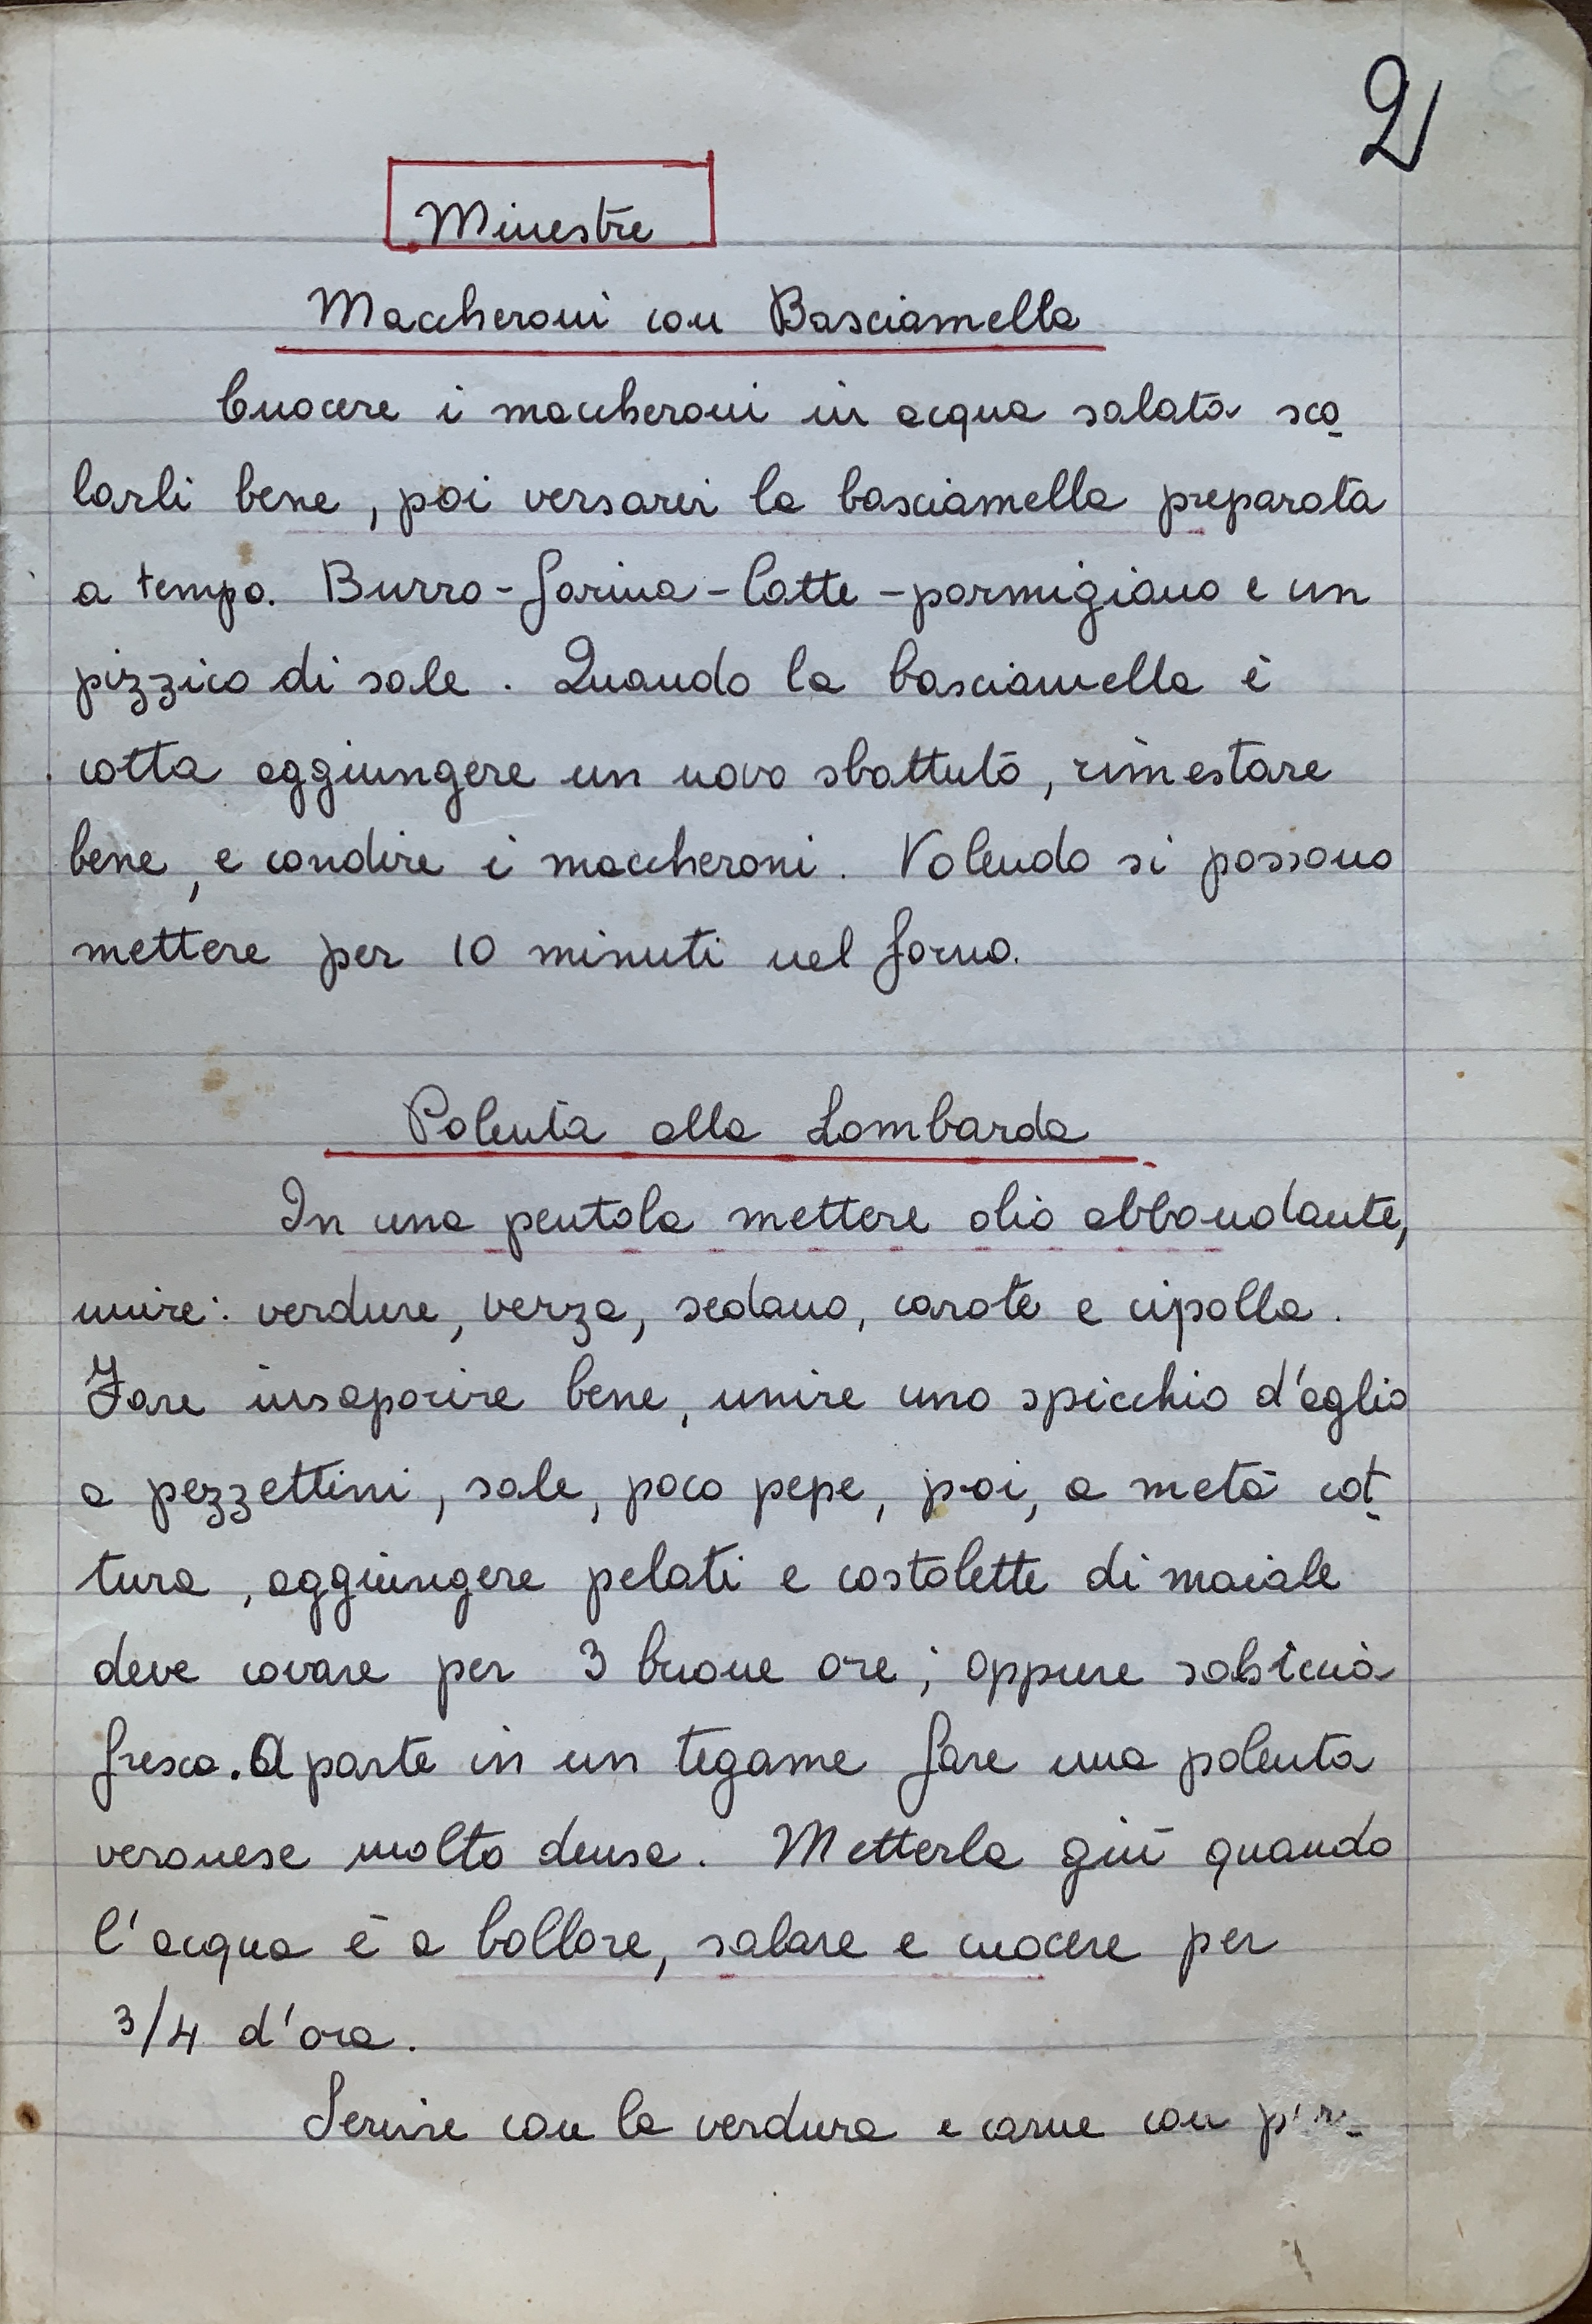 2
Minestre
Maccheroni con Basciamella
Cuocere i maccheroni in acqua salata sco-
larli bene, poi versarci la basciamella preparata
a tempo. Burro - farina - latte - parmigiano e un
pizzico di sale. Quando la basciamella è
cotta aggiungere un uovo sbattuto, rimestare
bene, e condire i maccheroni. Volendo si possono
mettere per 10 minuti nel forno.
Polenta alla Lombarda
In una pentola mettere olio abbondante,
unire: verdure, verza, sedano, carote e cipolla.
Fare insaporire bene, unire uno spicchio d'aglio
a pezzettini, sale, poco pepe, poi, a metà cot-
tura, aggiungere pelati e costolette di maiale
deve covare per 3 buone ore; oppure salsiccia
fresca. A parte in un tegame fare una polenta
veronese molto densa. Metterla giù quando
l'acqua è a bollore, salare e cuocere per
3/4 d'ora.
Servire con la verdura e carne con